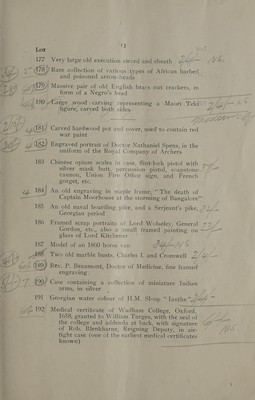 13
Lot
177 Very large old execution sword and sheath
178 Rare collection of various types of African barbed
and poisoned arrow-heads
179 Massive pair of old English brass nut crackers, in
form of a Negro's head
180 Large wood carving representing a Maori Teki
figure, carved both sides
181 Carved hardwood pot and cover, used to contain red
war paint
182 Engraved portrait of Doctor Nathaniel Spens, in the
uniform of the Royal Company of Archers
183 Chinese opium scales in case, flint-lock pistol with
silver mask butt, percussion pistol, soapstone
cannon, Union Fire Office sign, and French
gorget, etc.
184 An old engraving in maple frame, "The death of
Captain Moorhouse at the storming of Bangalore"
185 An old naval boarding pike, and a Serjeant's pike,
Georgian period
186 Framed scrap portraits of Lord Wolseley, General
Gordon, etc., also a small framed painting on
glass of Lord Kitchener
187 Model of an 1860 horse van
188 Two old marble busts, Charles I. and Cromwell
189 Rev. P. Beaumont, Doctor of Medicine, fine framed
engraving
190 Case containing a collection of miniature Indian
arms, in silver
191 Georgian water colour of H.M. Sloop "Ianthe"
192 Medical certificate of Wadham College, Oxford,
1658, granted to William Turges, with the seal of
the college and addenda at back, with signature
of Rob. Blenkharne, Reigning Deputy, in air-
tight case (one of the earliest medical certificates
known)